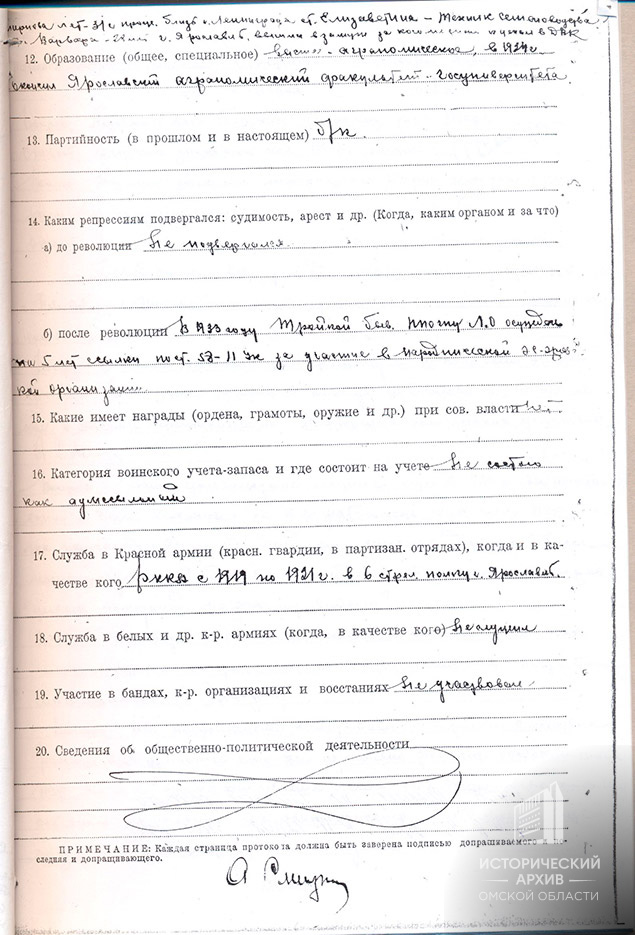 лет-31г прож. близ г. Ленинграда ст. Елизаветина – Техник семеноводства
Варвара г. Ярославль, вышла замуж за
12. Образование (общее, специальное) высш. агрономическое, в 1924г
окончил Ярославский агрономический факультет госуниверситета
13. Партийность (в прошлом и в настоящем) б/п.
14. Каким репрессиям подвергался: судимость, арест и др. (Когда, каким органом и за что)
а) до революции Не подвергался
б) после революции В 1933 году Тройкой быв. ППОГПУ Л.О осужден
на 5 лет ссылки по ст. 58-11 УК за участие в народнической
кой организации.
15. Какие имеет награды (ордена, грамоты, оружие и др.) при сов. власти нет
16. Категория воинского учета-запаса и где состоит на учете Не состою
как адмссыльный
17. Служба в Красной армии (красн. гвардии, в партизан. отрядах), когда и в ка-
честве кого РККА с 1919 по 1921г. в 6 стрел. полку г. Ярославль.
18. Служба в белых и др. к.-р. армиях (когда, в качестве кого) Не служил
19. Участие в бандах, к.-р. организациях и восстаниях Не участвовал
20. Сведения об общественно-политической деятельности
ПРИМЕЧАНИЕ: Каждая страница протокола должна быть заверена подписью допрашиваемого а по-
следняя и допрашивающего.
ИСТОРИЧЕСКИЙ
АРХИВ
ОМСКОЙ ОБЛАСТИ